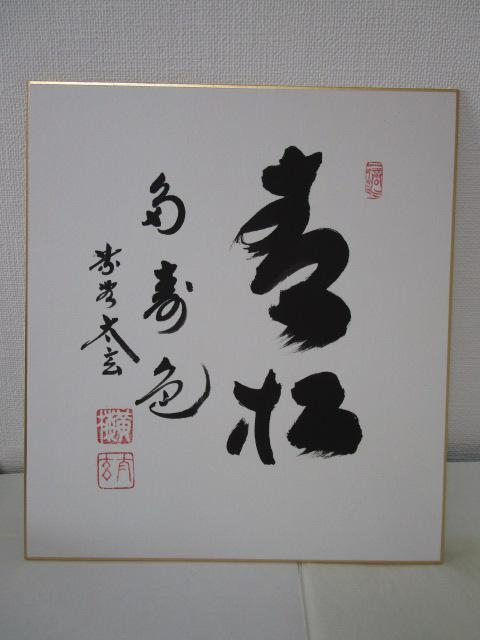 青松
多寿色
紫野 太玄